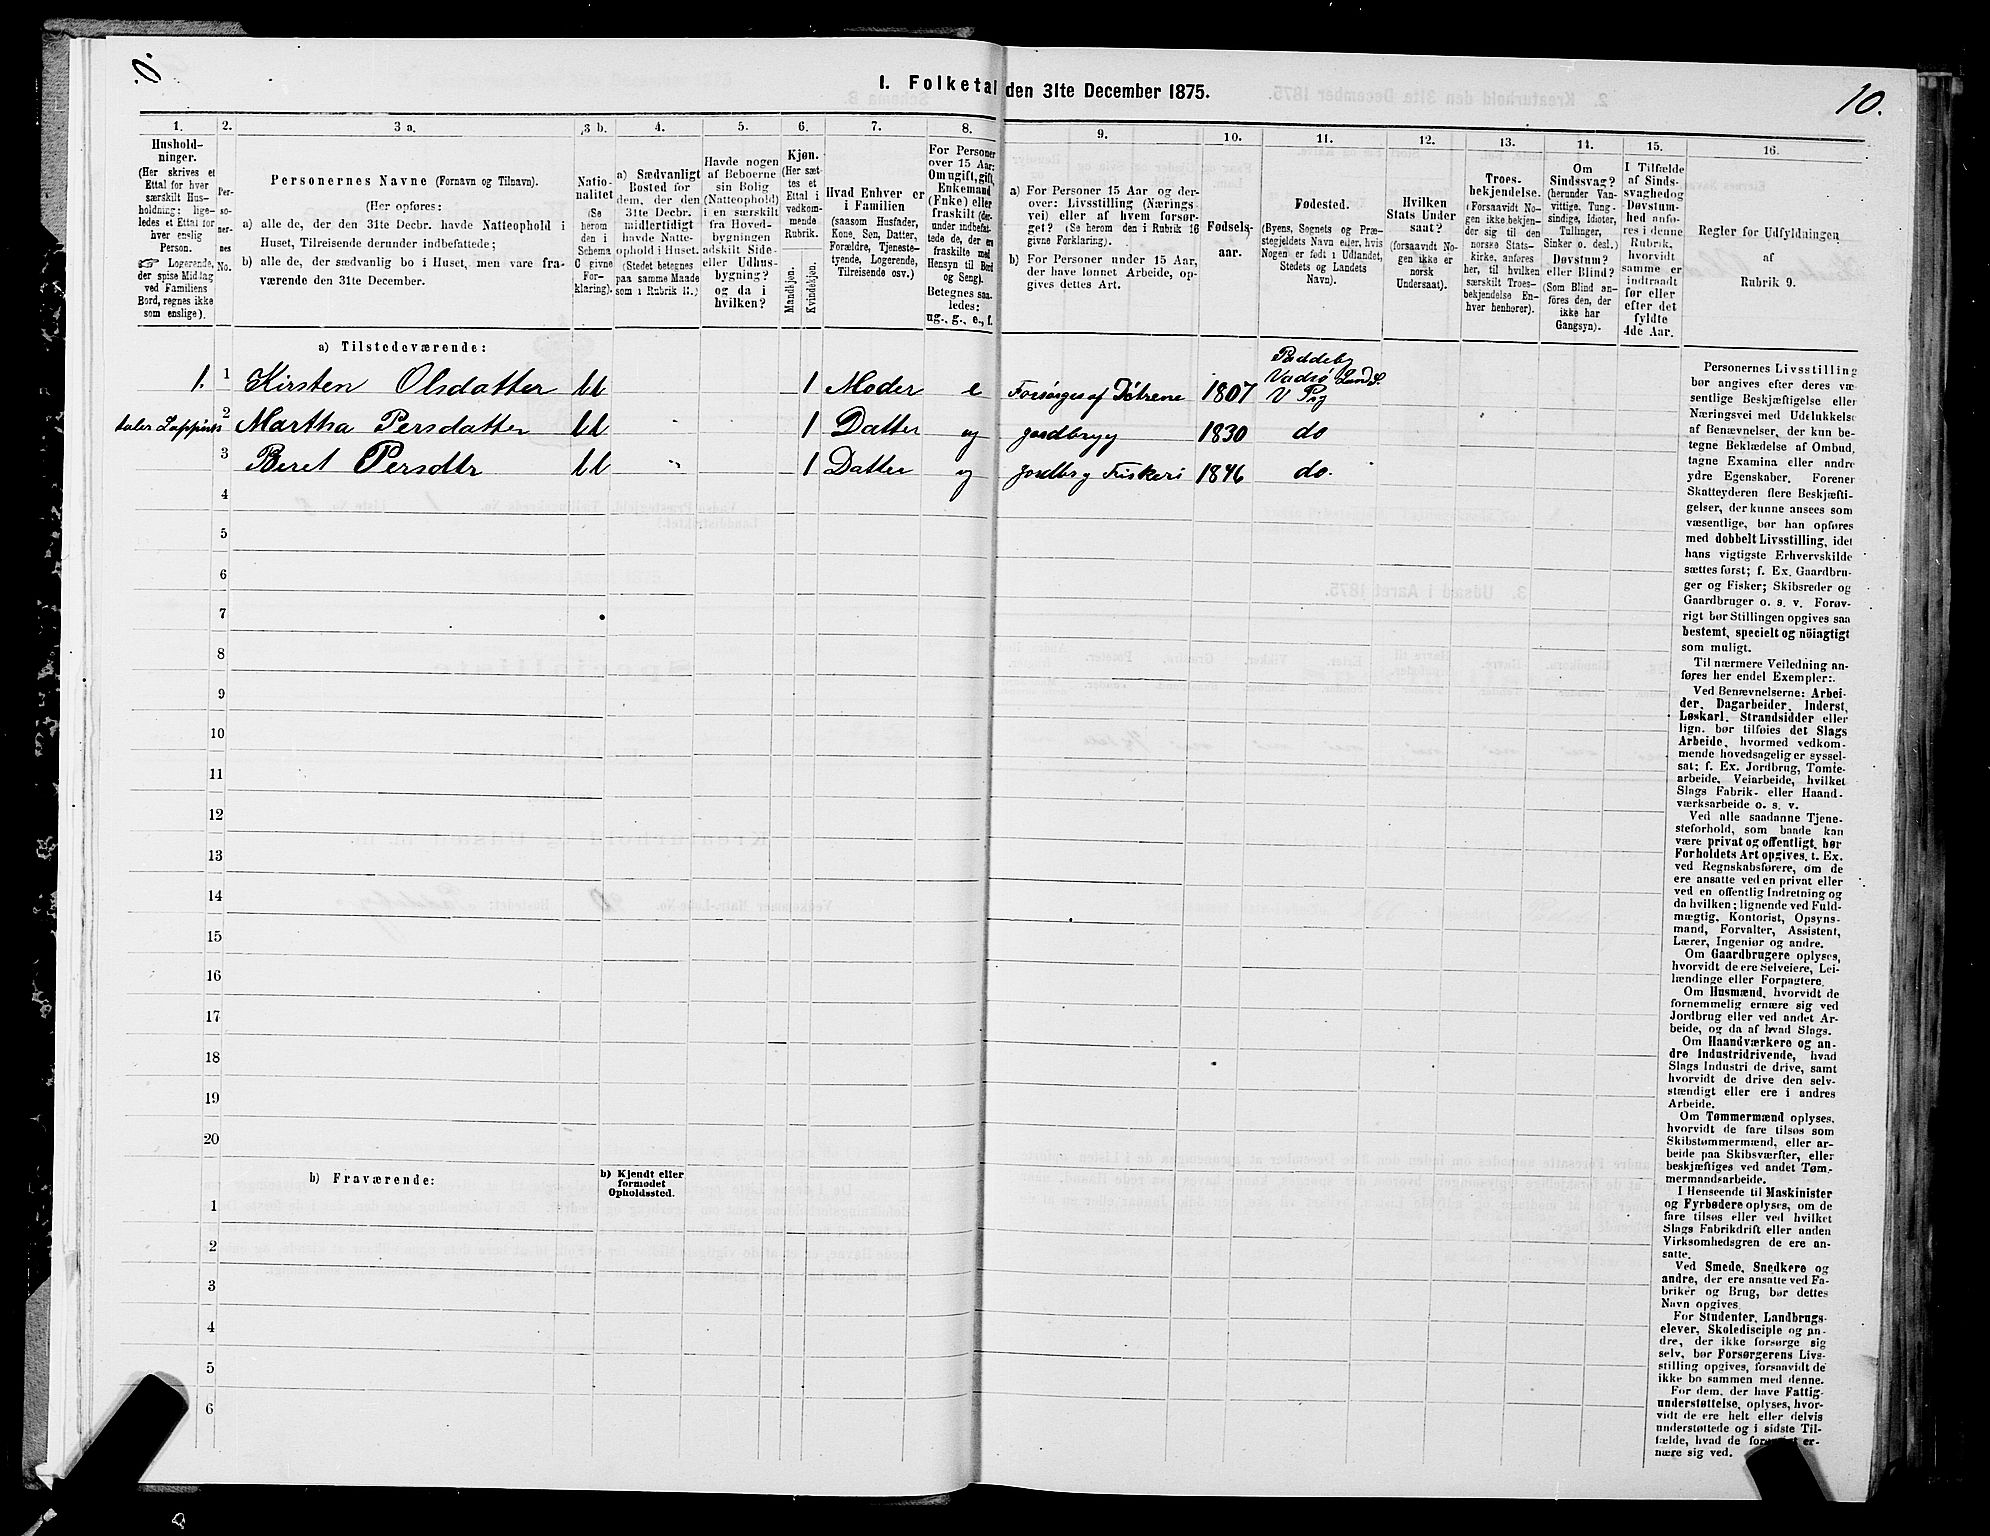 1. Folketal den 31te December 1875.
10.
1.
Hushold-
ninger.
(Her skrives et
Ettal for hver
særskilt Hus-
holdning; lige-
ledes et Ettal for
hver enslig
Person.
☞ Logerende,
der spise Middag
ved Familiens
Bord, regnes ikke
som enslige).
2.
Per-
so-
ner-
nes
No.
3 a.
Personernes Navne (Fornavn og Tilnavn).
(Her opføres:
a) alle de, der den 31te Decbr. havde Natteophold i
Huset, Tilreisende derunder indbefattede;
b) alle de, der sædvanlig bo i Huset, men vare fra-
værende den 31te December.
3 b.
Natio-
nalitet
(Se
herom
den i
Schema
O givne
For-
klaring).
4.
a) Sædvanligt
Bosted for
dem, der den
31te Decbr.
midlertidigt
havde Natte-
ophold i Huset.
(Stedet betegnes
paa samme Maade
som i Rubrik 11.)
5.
Havde nogen
af Beboerne
sin Bolig
(Natteophold)
i en særskilt
fra Hoved-
bygningen
adskilt Side-
eller Udhus-
bygning?
og da i
hvilken?
6.
Kjøn.
(Her sæt-
tes et
Ettal i
vedkom-
mende
Rubrik.
Mandkjøn.
Kvindekjøn.
7.
Hvad Enhver er
i Familien
(saasom Husfader,
Kone, Søn, Datter,
Forældre, Tjeneste-
tyende, Logerende,
Tilreisende osv.)
8.
For Personer
over 15 Aar:
Om ugift, gift,
Enkemand
(Enke) eller
fraskilt (der-
under indbefat-
tede de, der ere
fraskilte med
Hensyn til Bord
og Seng).
Betegnes saa-
ledes:
ug., g., e., f.
9.
a) For Personer 15 Aar og der-
over: Livsstilling (Nærings-
vei) eller af hvem forsør-
get? (Se herom den i Rubrik 16
givne Forklaring).
b) For Personer under 15 Aar,
der have lønnet Arbeide, op-
gives dettes Art.
10.
Fødsels-
aar.
11.
Fødested.
(Byens, Sognets og Præ-
stegjeldets Navn eller, hvis
Nogen er født i Udlandet,
Stedets og Landets
Navn).
12.
Hvilken
Stats Under-
saat?
(forsaavidt No-
gen ikke er
norsk
Undersaat).
13.
Troes-
bekjendelse.
(Forsaavidt No-
gen ikke bekjen-
der sig til den
norske Stats-
kirke, anføres
her, til hvilken
særskilt Troes-
bekjendelse En-
hver henhører).
14.
Om
Sindssvag?
(herunder Van-
vittige, Tung-
sindige, Idioter,
Tullinger,
Sinker o. desl.)
Døvstum?
eller Blind?
(Som Blind an-
føres den, der
ikke har
Gangsyn).
15.
I Tilfælde
af Sinds-
svaghed og
Døvstum-
hed anfø-
res i denne
Rubrik,
hvorvidt
samme er
indtraadt
før eller
efter det
fyldte
4de Aar.
16.
Regler for Udfyldningen
af
Rubrik 9.
a) Tilstedeværende:
Paddeby
Vadsø Land S.
1. 1 Kirsten Olsdatter 1 Moder e Forsørges af Døtrene 1807 V Prg
taler Lappisk 2 Martha Persdatter 1 Datter ug jordbrug 1830 do
3 Beret Persdttr 1 Datter ug jordbrug Fiskeri 1846 do.
4
5
6
7
8
9
10
11
12
13
14
15
16
17
18
19
20
b) Fraværende:
b) Kjendt eller
formodet
Opholdssted.
1
2
3
4
5
6
Personernes Livsstilling
bør angives efter deres væ-
sentlige Beskjæftigelse eller
Næringsvei med Udelukkelse
af Benævnelser, der kun be-
tegne Beklædelse af Ombud,
tagne Examina eller andre
ydre Egenskaber. Forener
Skatteyderen flere Beskjæfti-
gelser, der kunne ansees som
væsentlige, bør han opføres
med dobbelt Livsstilling, idet
hans vigtigste Erhvervskilde
sættes først; f. Ex. Gaardbru-
ger og Fisker; Skibsreder og
Gaardbruger o. s. v. Forøv-
rigt bør Stillingen opgives saa
bestemt, specielt og nöiagtigt
som muligt.
Til nærmere Veiledning an-
føres her endel Exempler:
Ved Benævnelserne: Arbei-
der, Dagarbeider, Inderst,
Løskarl, Strandsidder eller
lign. bør tilføies det Slags
Arbeide, hvormed vedkom-
mende hovedsagelig er syssel-
sat; f. Ex. Jordbrug, Tomte-
arbeide, Veiarbeide, hvilket
Slags Fabrik- eller Haand-
værksarbeide o. s. v.
Ved alle saadanne Tjene-
steforhold, som baade kan
være privat og offentligt, bør
Forholdets Art opgives, t. Ex.
ved Regnskabsførere, om de
ere ansatte ved en privat eller
ved en offentlig Indretning og
da hvilken; lignende ved Fuld-
mægtig, Kontorist, Opsyns-
mand, Forvalter, Assistent,
Lærer, Ingeniør og andre.
Om Gaardbrugere oplyses,
hvorvidt de ere Selveiere, Lei-
lændinge eller Forpagtere.
Om Husmænd, hvorvidt de
fornemmelig ernære sig ved
Jordbrug eller ved andet Ar-
beide, og da af hvad Slags.
Om Haandværkere og an-
dre Industridrivende, hvad
Slags Industri de drive, samt
hvorvidt de drive den selv-
stændigt eller ere i andres
Arbeide.
Om Tømmermænd oplyses,
hvorvidt de fare tilsøs som
Skibstømmermænd, eller ar-
beide paa Skibsværfter, eller
beskjæftiges ved andet Tøm-
mermandsarbeide.
I Henseende til Maskinister
og Fyrbødere oplyses, om de
fare tilsøs eller ved hvilket
Slags Fabrikdrift eller anden
Virksomhedsgren de ere an-
satte.
Ved Smede, Snedkere og
andre, der ere ansatte ved Fa-
briker og Brug, bør dettes
Navn opgives.
For Studenter, Landbrugs-
elever, Skoledisciple og an-
dre, der ikke forsørge sig
selv, bør Forsørgerens Livs-
stilling opgives, forsaavidt de
ikke bo sammen med denne.
For dem, der have Fattig-
understøttelse, oplyses, hvor-
vidt de ere helt eller delvis
understøttede og i sidste Til-
fælde, hvad de forøvrigt er-
nære sig ved.